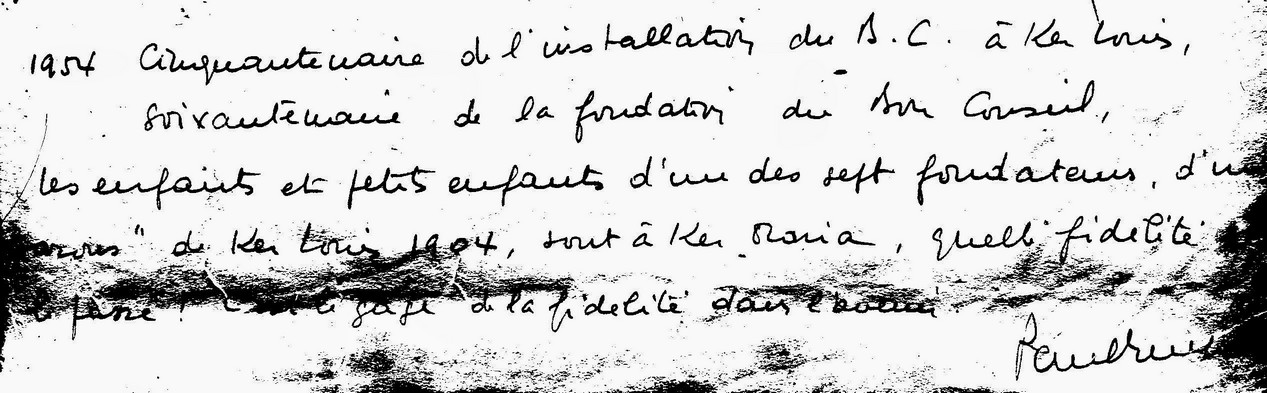 1954 Cinquantenaire de l'installation du B.C. à Ker Louis,
soixantenaire de la fondation du Bon Conseil,
les enfants et petits enfants d'un des sept fondateurs, d'un
de Ker Louis 1904, sont à Ker Maria, quelle fidélité
le passé ! C'est le gage de la fidelité dans l'avenir.